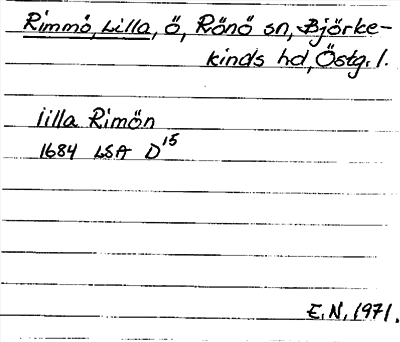 Rimmö, Lilla, ö, Rönö sn, Björke-
kinds hd, Östg. l.
lilla Rimön
1684 LSA D15
E.N. 1971.